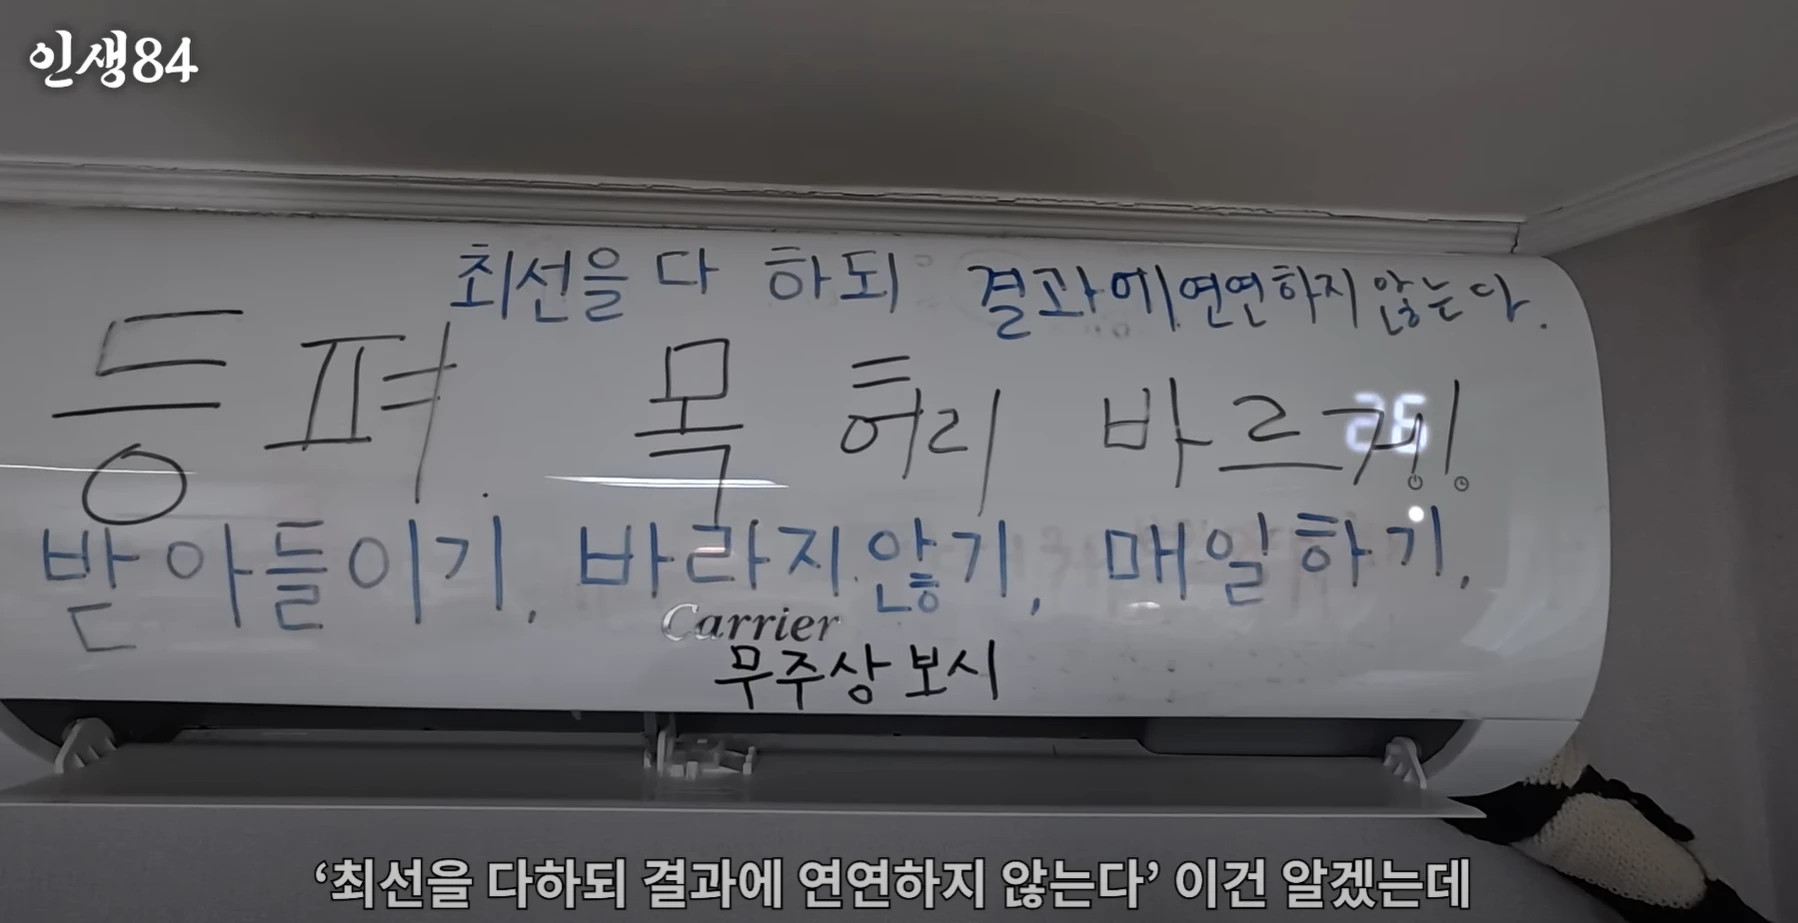 인생84
최선을 다 하되 결과에 연연하지 않는다.
등 펴. 목 허리 바르게!
26
받아들이기, 바라지 않기, 매일하기,
Carrier
무주상 보시
‘최선을 다하되 결과에 연연하지 않는다’ 이건 알겠는데